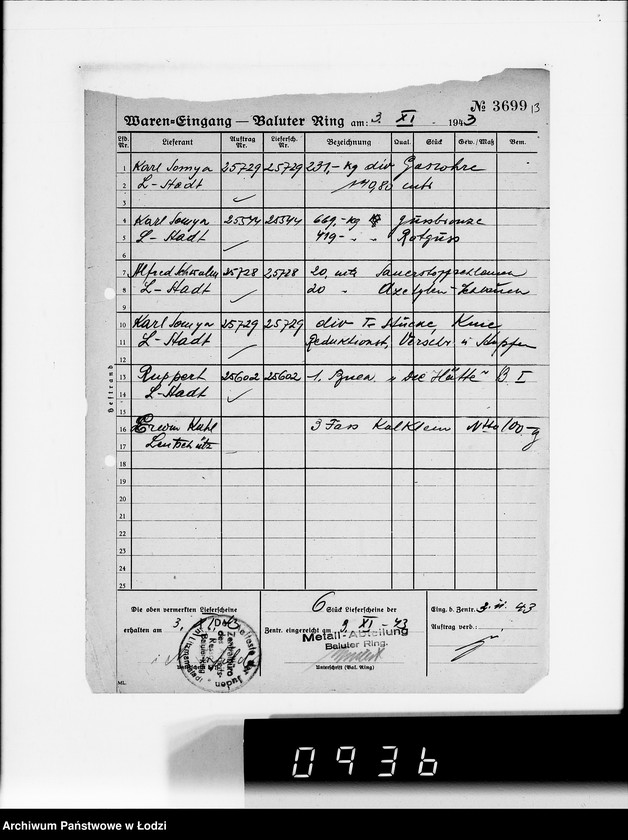 № 3699 /3
Waren=Eingang — Baluter Ring am: 3. XI 1943
Lfd. Nr. Lieferant Auftrag Nr. Liefersch. Nr. Bezeichnung Qual. Stück Gew./Maß Bem.
1 Karl Somya 25729 25729 231,- kg div Gasrohre
2 L-Stadt 140,80 mtr
3
4 Karl Somya 25544 25544 669,- kg Gussbronze
5 L-Stadt 419,- " " Rotguss
6
7 Alfred 25728 25728 20, mtr Sauerstoffschlauen
8 L-Stadt 20 " Azetylen-
9
10 Karl Somya 25729 25729 div T. Stücke, Knie,
11 L-Stadt Reduktionst, Verschr u Stopfen
12
13 Ruppert 25602 25602 1. Buch "Die Hütte" B. I
14 L-Stadt
15
16 Erwin Kuhl 3 Fass Netto 100,-
17 Lentschütz
18
19
20
21
22
23
24
25
Heftrand
Die oben vermerkten Lieferscheine
erhalten am 3.
6 Stück Lieferscheine der
Zentr. eingereicht am 3. XI - 43
Metall-Abteilung
Baluter Ring.
Unterschrift (Bal. Ring)
Eing. b. Zentr. 3. 11. 43
Auftrag verb.:
ML.
0936
Archiwum Państwowe w Łodzi